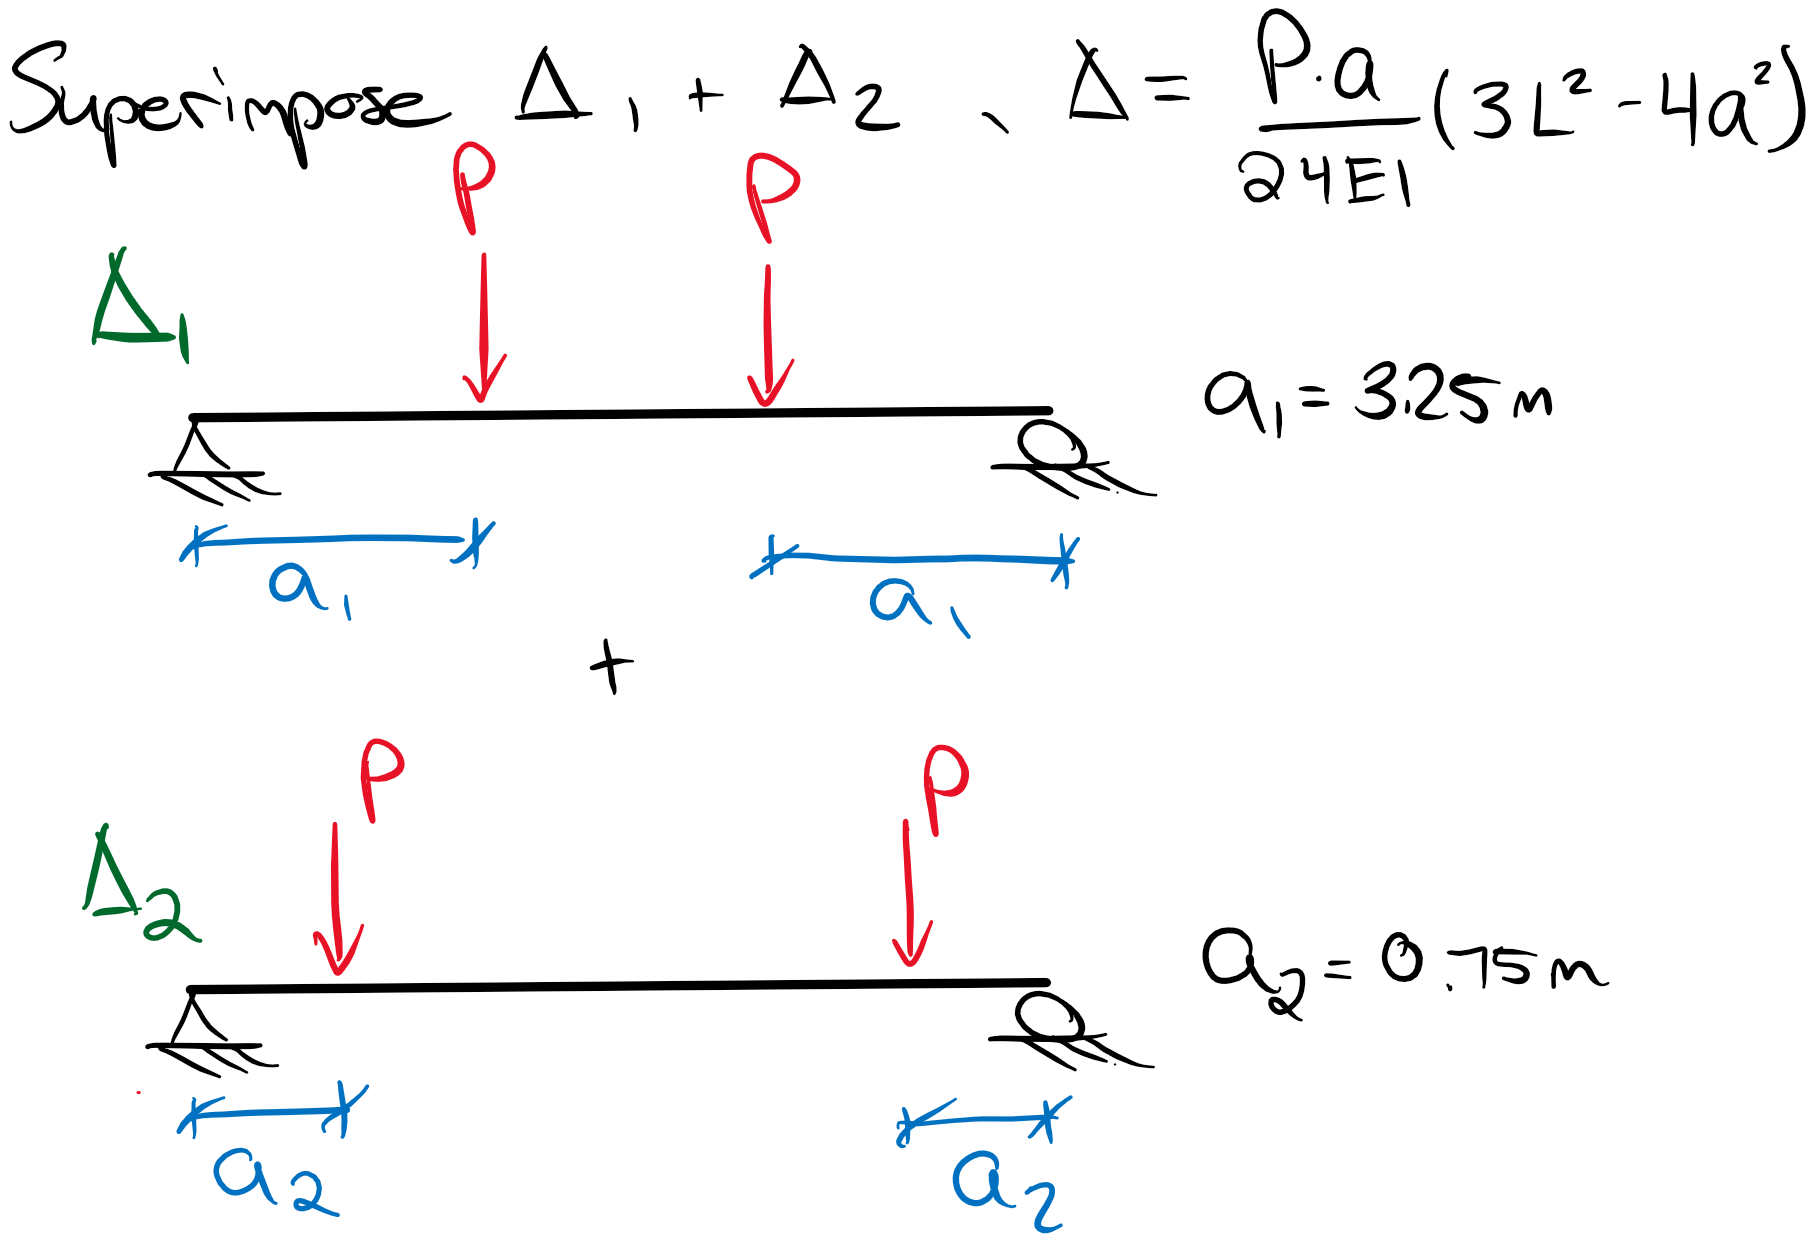 Superimpose Δ₁ + Δ₂ , Δ = P·a/24EI (3L² - 4a²)
P P
Δ₁
a₁ = 3.25 m
a₁ a₁
+
P P
Δ₂
a₂ = 0.75 m
a₂ a₂